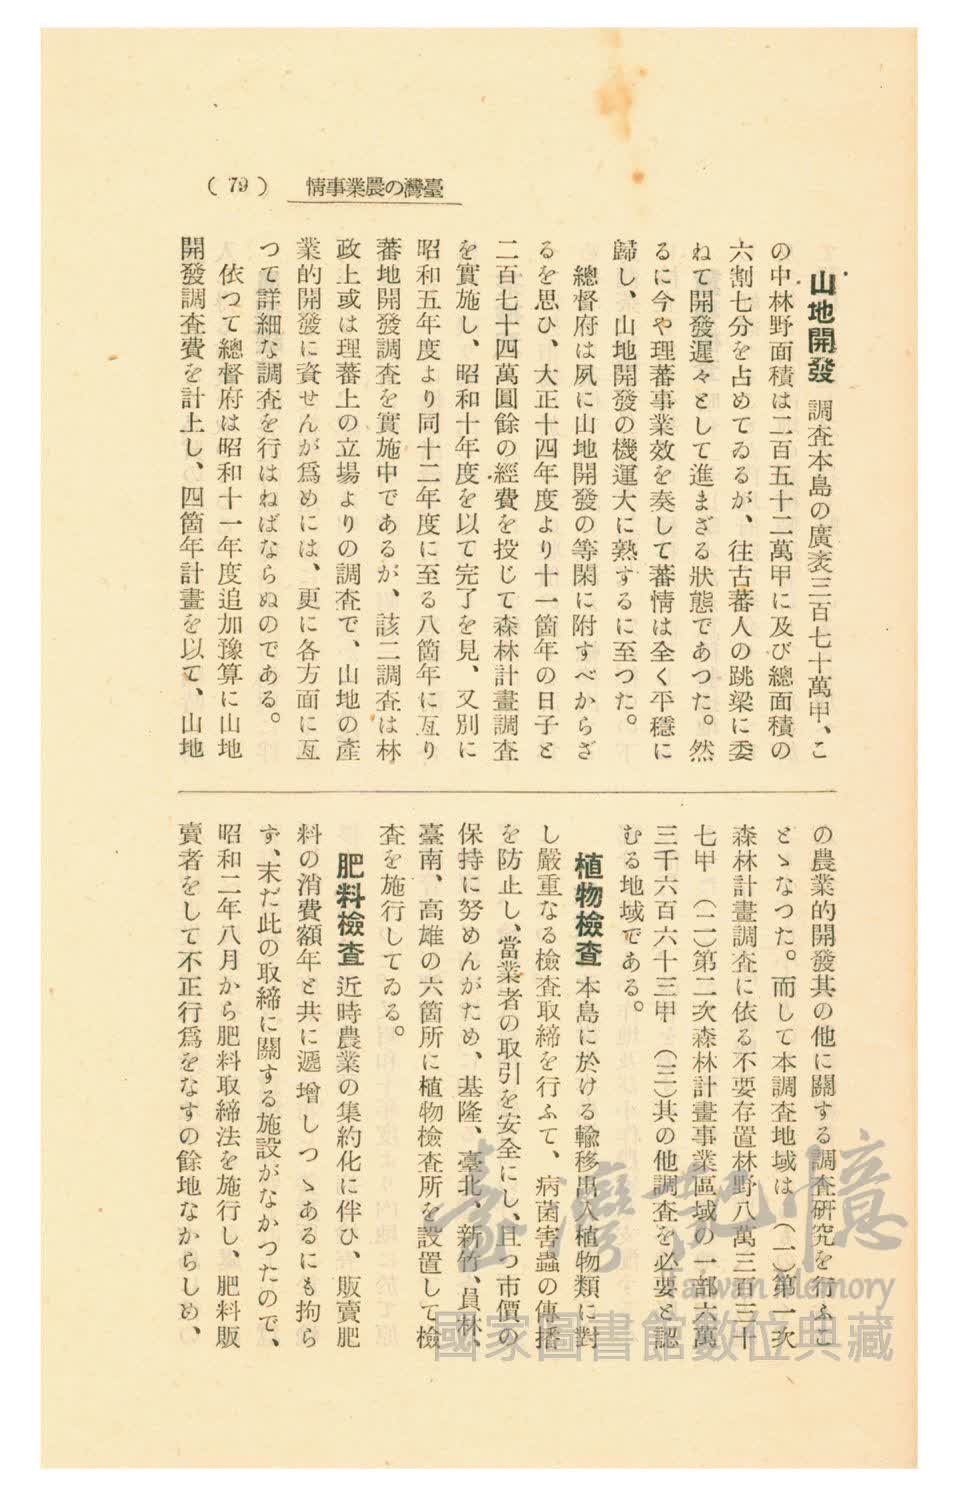 (79)　情事業農の灣臺
山地開發　調査本島の廣袤三百七十萬甲、こ
の中林野面積は二百五十二萬甲に及び總面積の
六割七分を占めてゐるが、往古蕃人の跳梁に委
ねて開發遲々として進まざる狀態であつた。然
るに今や理蕃事業效を奏して蕃情は全く平穩に
歸し、山地開發の機運大に熟するに至つた。
總督府は夙に山地開發の等閑に附すべからざ
るを思ひ、大正十四年度より十一箇年の日子と
二百七十四萬圓餘の經費を投じて森林計畫調査
を實施し、昭和十年度を以て完了を見、又別に
昭和五年度より同十二年度に至る八箇年に亙り
蕃地開發調査を實施中であるが、該二調査は林
政上或は理蕃上の立場よりの調査で、山地の產
業的開發に資せんが爲めには、更に各方面に亙
つて詳細な調査を行はねばならぬのである。
依つて總督府は昭和十一年度追加豫算に山地
開發調査費を計上し、四箇年計畫を以て、山地
の農業的開發其の他に關する調査研究を行ふこ
とゝなつた。而して本調査地域は　(一)第一次
森林計畫調査に依る不要存置林野八萬三百三十
七甲　(二)第二次森林計畫事業區域の一部六萬
三千六百六十三甲　(三)其の他調査を必要と認
むる地域である。
植物檢査　本島に於ける輸移出入植物類に對
し嚴重なる檢査取締を行ふて、病菌害蟲の傳播
を防止し、當業者の取引を安全にし、且つ市價の
保持に努めんがため、基隆、臺北、新竹、員林、
臺南、高雄の六箇所に植物檢査所を設置して檢
査を施行してゐる。
肥料檢査　近時農業の集約化に伴ひ、販賣肥
料の消費額年と共に遞增しつゝあるにも拘ら
ず、末だ此の取締に關する施設がなかつたので、
昭和二年八月から肥料取締法を施行し、肥料販
賣者をして不正行爲をなすの餘地なからしめ、
臺灣記憶
Taiwan Memory
國家圖書館數位典藏